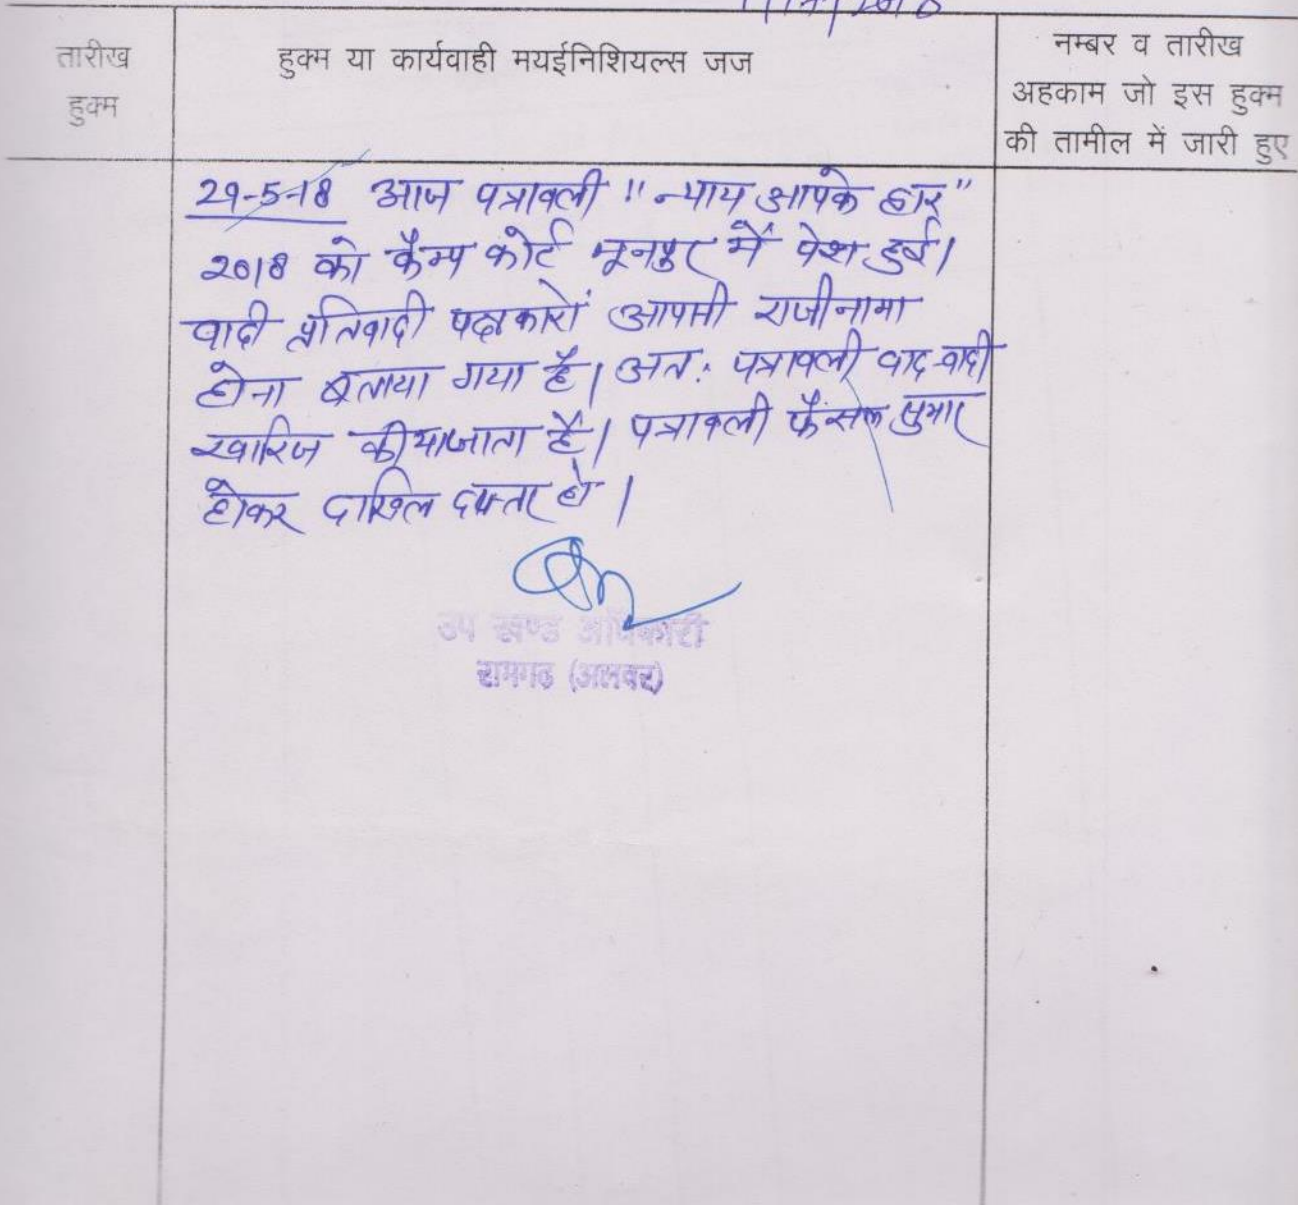 तारीख
हुक्म
हुक्म या कार्यवाही मयईनिशियल्स जज
नम्बर व तारीख
अहकाम जो इस हुक्म
की तामील में जारी हुए
29-5-18 आज पत्रावली "न्याय आपके द्वार"
2018 को कैम्प कोर्ट में पेश हुई।
वादी प्रतिवादी पक्षकारों आपसी राजीनामा
होना बताया गया है। अतः पत्रावली वाद वादी
खारिज कीयाजाता है। पत्रावली फैसल सुमार
होकर दाखिल दफ्तर हो।
उप खण्ड अधिकारी
रामगढ (अलवर)